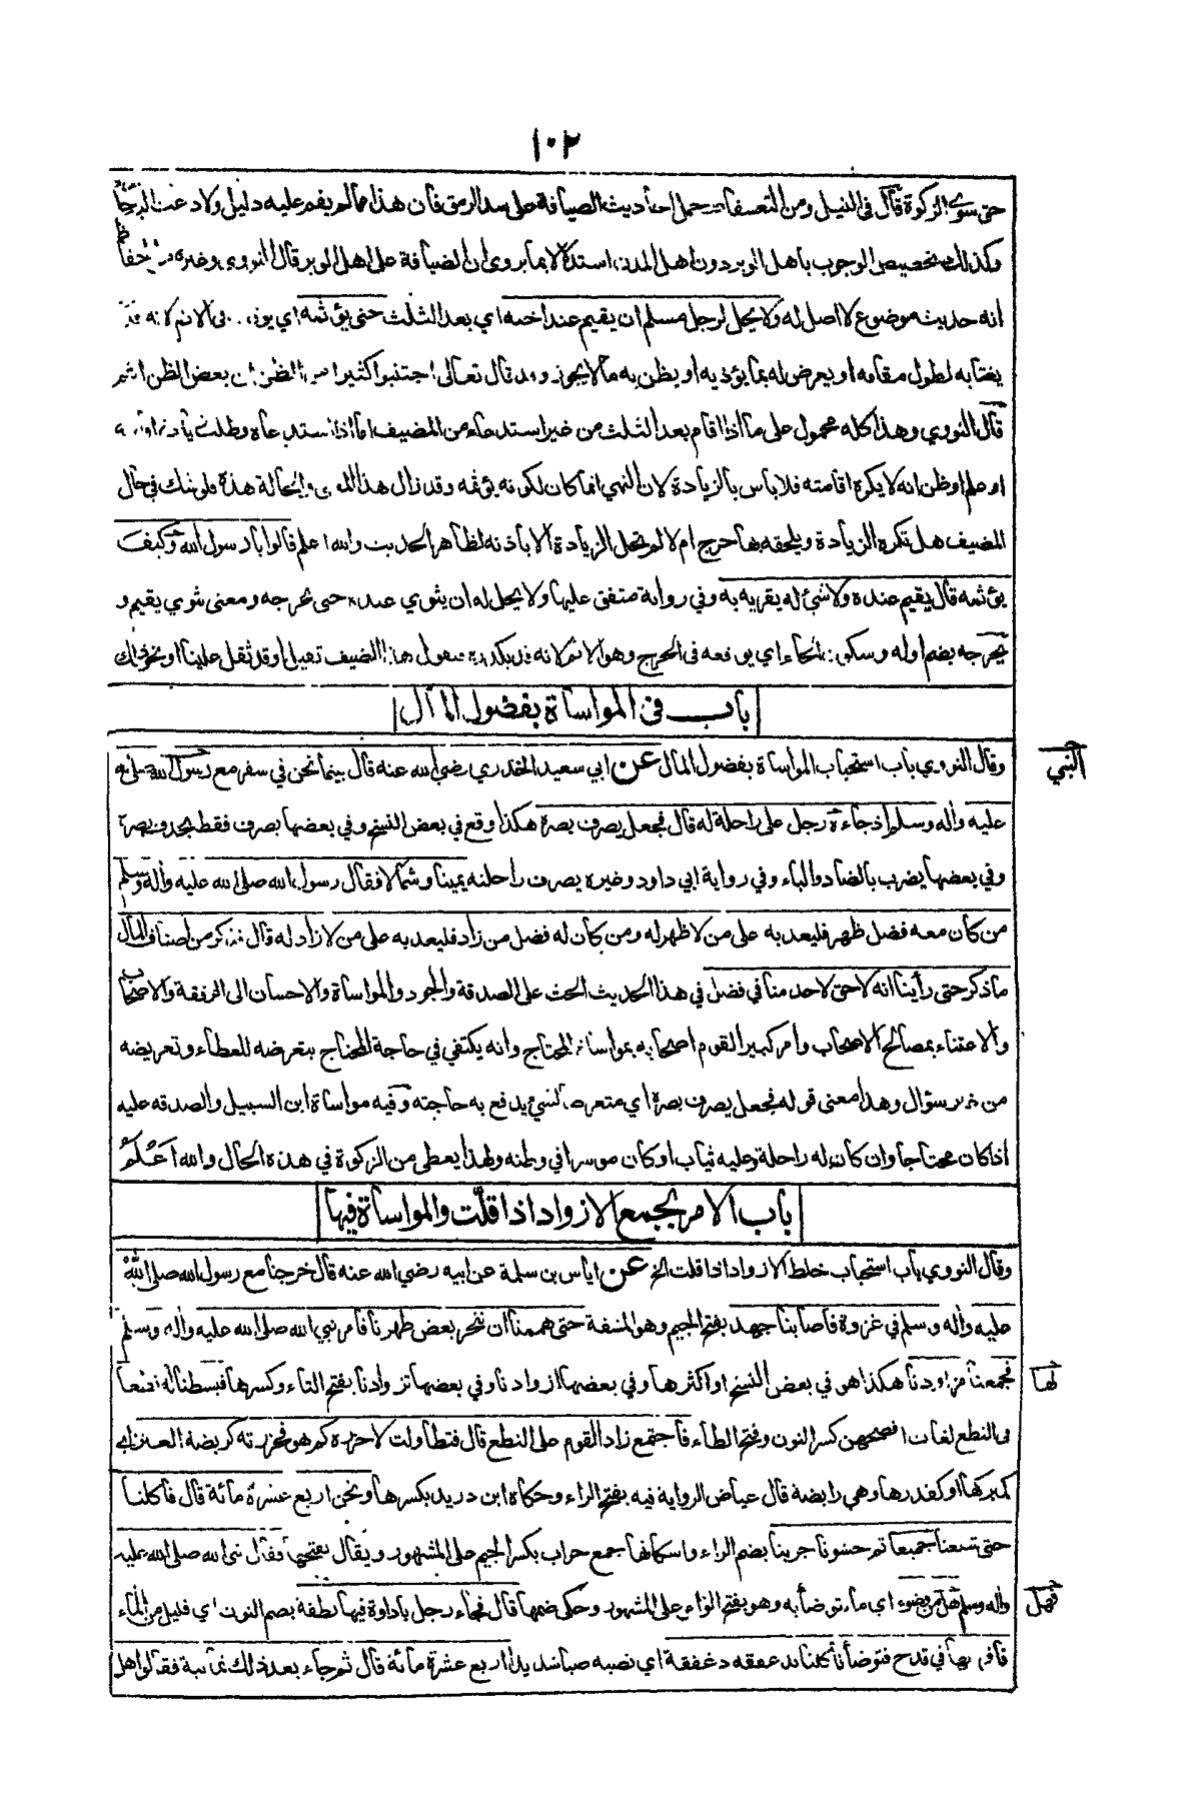 ١٠٢
حتى سوى الزكوة قال في النيل ومن التعسفات حمل احاديث الضيافة على سد الرمق فان هذا مما لم يقم عليه دليل ولا دعت اليه حاجة
وكذلك تخصيص الوجوب باهل الوبر دون اهل المدن استدلالا بما يروى ان الضيافة على اهل الوبر قال النووي وغيره من الحفاظ
انه حديث موضوع لا اصل له ولا يحل لرجل مسلم ان يقيم عند اخيه اي بعد الثلث حتى يؤثمه اي يوقعه في الاثم لانه قد
يغتابه لطول مقامه او يعرض له بما يؤذيه او يظن به ما لا يجوز وقد قال تعالى اجتنبوا كثيرا من الظن ان بعض الظن اثم
قال النووي وهذا كله محمول على ما اذا اقام بعد الثلث من غير استدعاء من المضيف اما اذا استدعاه وطلب زيادة اقامته
او علم او ظن انه لا يكره اقامته فلا باس بالزيادة لان النهي انما كان لكونه يؤثمه وقد زال هذا المعنى والحالة هذه فلو شك في حال
المضيف هل تكره الزيادة ويلحقه بها حرج ام لا لم تحل الزيادة الا باذنه لظاهر الحديث والله اعلم قالوا يا رسول الله وكيف
يؤثمه قال يقيم عنده ولا شئ له يقريه به وفي رواية متفق عليها ولا يحل له ان يثوي عنده حتى يحرجه ومعنى يثوي يقيم و
يحرجه بضم اوله وسكون الحاء اي يوقعه في الحرج وهو الاثم لانه قد يكدره فيقول هذا الضيف ثقيل او قد ثقل علينا او نحو ذلك
باب في المواساة بفضول المال
وقال النووي باب استحباب المواساة بفضول المال عن ابي سعيد الخدري رضي الله عنه قال بينما نحن في سفر مع رسول الله صلى الله
النبي
عليه واله وسلم اذ جاءه رجل على راحلة له قال فجعل يصرف بصره هكذا وقع في بعض النسخ وفي بعضها يصرف فقط بحذف بصره
وفي بعضها يضرب بالضاد والباء وفي رواية ابي داود وغيره يصرف راحلته يمينا وشمالا فقال رسول الله صلى الله عليه واله وسلم
من كان معه فضل ظهر فليعد به على من لا ظهر له ومن كان له فضل من زاد فليعد به على من لا زاد له قال فذكر من اصناف المال
ما ذكر حتى رأينا انه لا حق لاحد منا في فضل في هذا الحديث الحث على الصدقة والجود والمواساة والاحسان الى الرفقة والاصحاب
والاعتناء بمصالح الاصحاب وامر كبير القوم اصحابه بمواساة المحتاج وانه يكتفي في حاجة المحتاج بتعرضه للعطاء وتعريضه
من غير سؤال وهذا معنى قوله فجعل يصرف بصره اي متعرضا لشئ يدفع به حاجته وفيه مواساة ابن السبيل والصدقه عليه
اذا كان محتاجا وان كان له راحلة وعليه ثياب او كان موسرا في وطنه ولهذا يعطى من الزكوة في هذه الحال والله اعلم
باب الامر بجمع الازواد اذا قلت والمواساة فيها
وقال النووي باب استحباب خلط الازواد اذا قلت الخ عن اياس بن سلمة عن ابيه رضي الله عنه قال خرجنا مع رسول الله صلى الله
عليه واله وسلم في غزوة فاصابنا جهد بفتح الجيم وهو المشقة حتى هممنا ان ننحر بعض ظهرنا فامر نبي الله صلى الله عليه واله وسلم
فجمعنا مزاودنا هكذا هو في بعض النسخ او اكثرها وفي بعضها ازوادنا وفي بعضها تزوادنا بفتح التاء وكسرها فبسطنا له نطعا
لها
في النطع لغات افصحهن كسر النون وفتح الطاء فاجتمع زاد القوم على النطع قال فتطاولت لاحزره كم هو فحزرته كربضة العنز اي
كمبركها او كقدرها وهي رابضة قال عياض الرواية فيه بفتح الراء وحكاه ابن دريد بكسرها ونحن اربع عشرة مائة قال فاكلنا
حتى شبعنا جميعا ثم حشونا جربنا بضم الراء واسكانها جمع جراب بكسر الجيم على المشهور ويقال بفتحها فقال نبي الله صلى الله عليه
واله وسلم هل من وضوء اي ماء نتوضأ به وهو بفتح الواو على المشهور وحكى ضمها قال فجاء رجل باداوة فيها نطفة بضم النون اي قليل من الماء
فهل
فافرغها في قدح فتوضأنا كلنا ندغفقه دغفقة اي نصبه صبا شديدا اربع عشرة مائة قال ثم جاء بعد ذلك ثمانية فقالوا هل